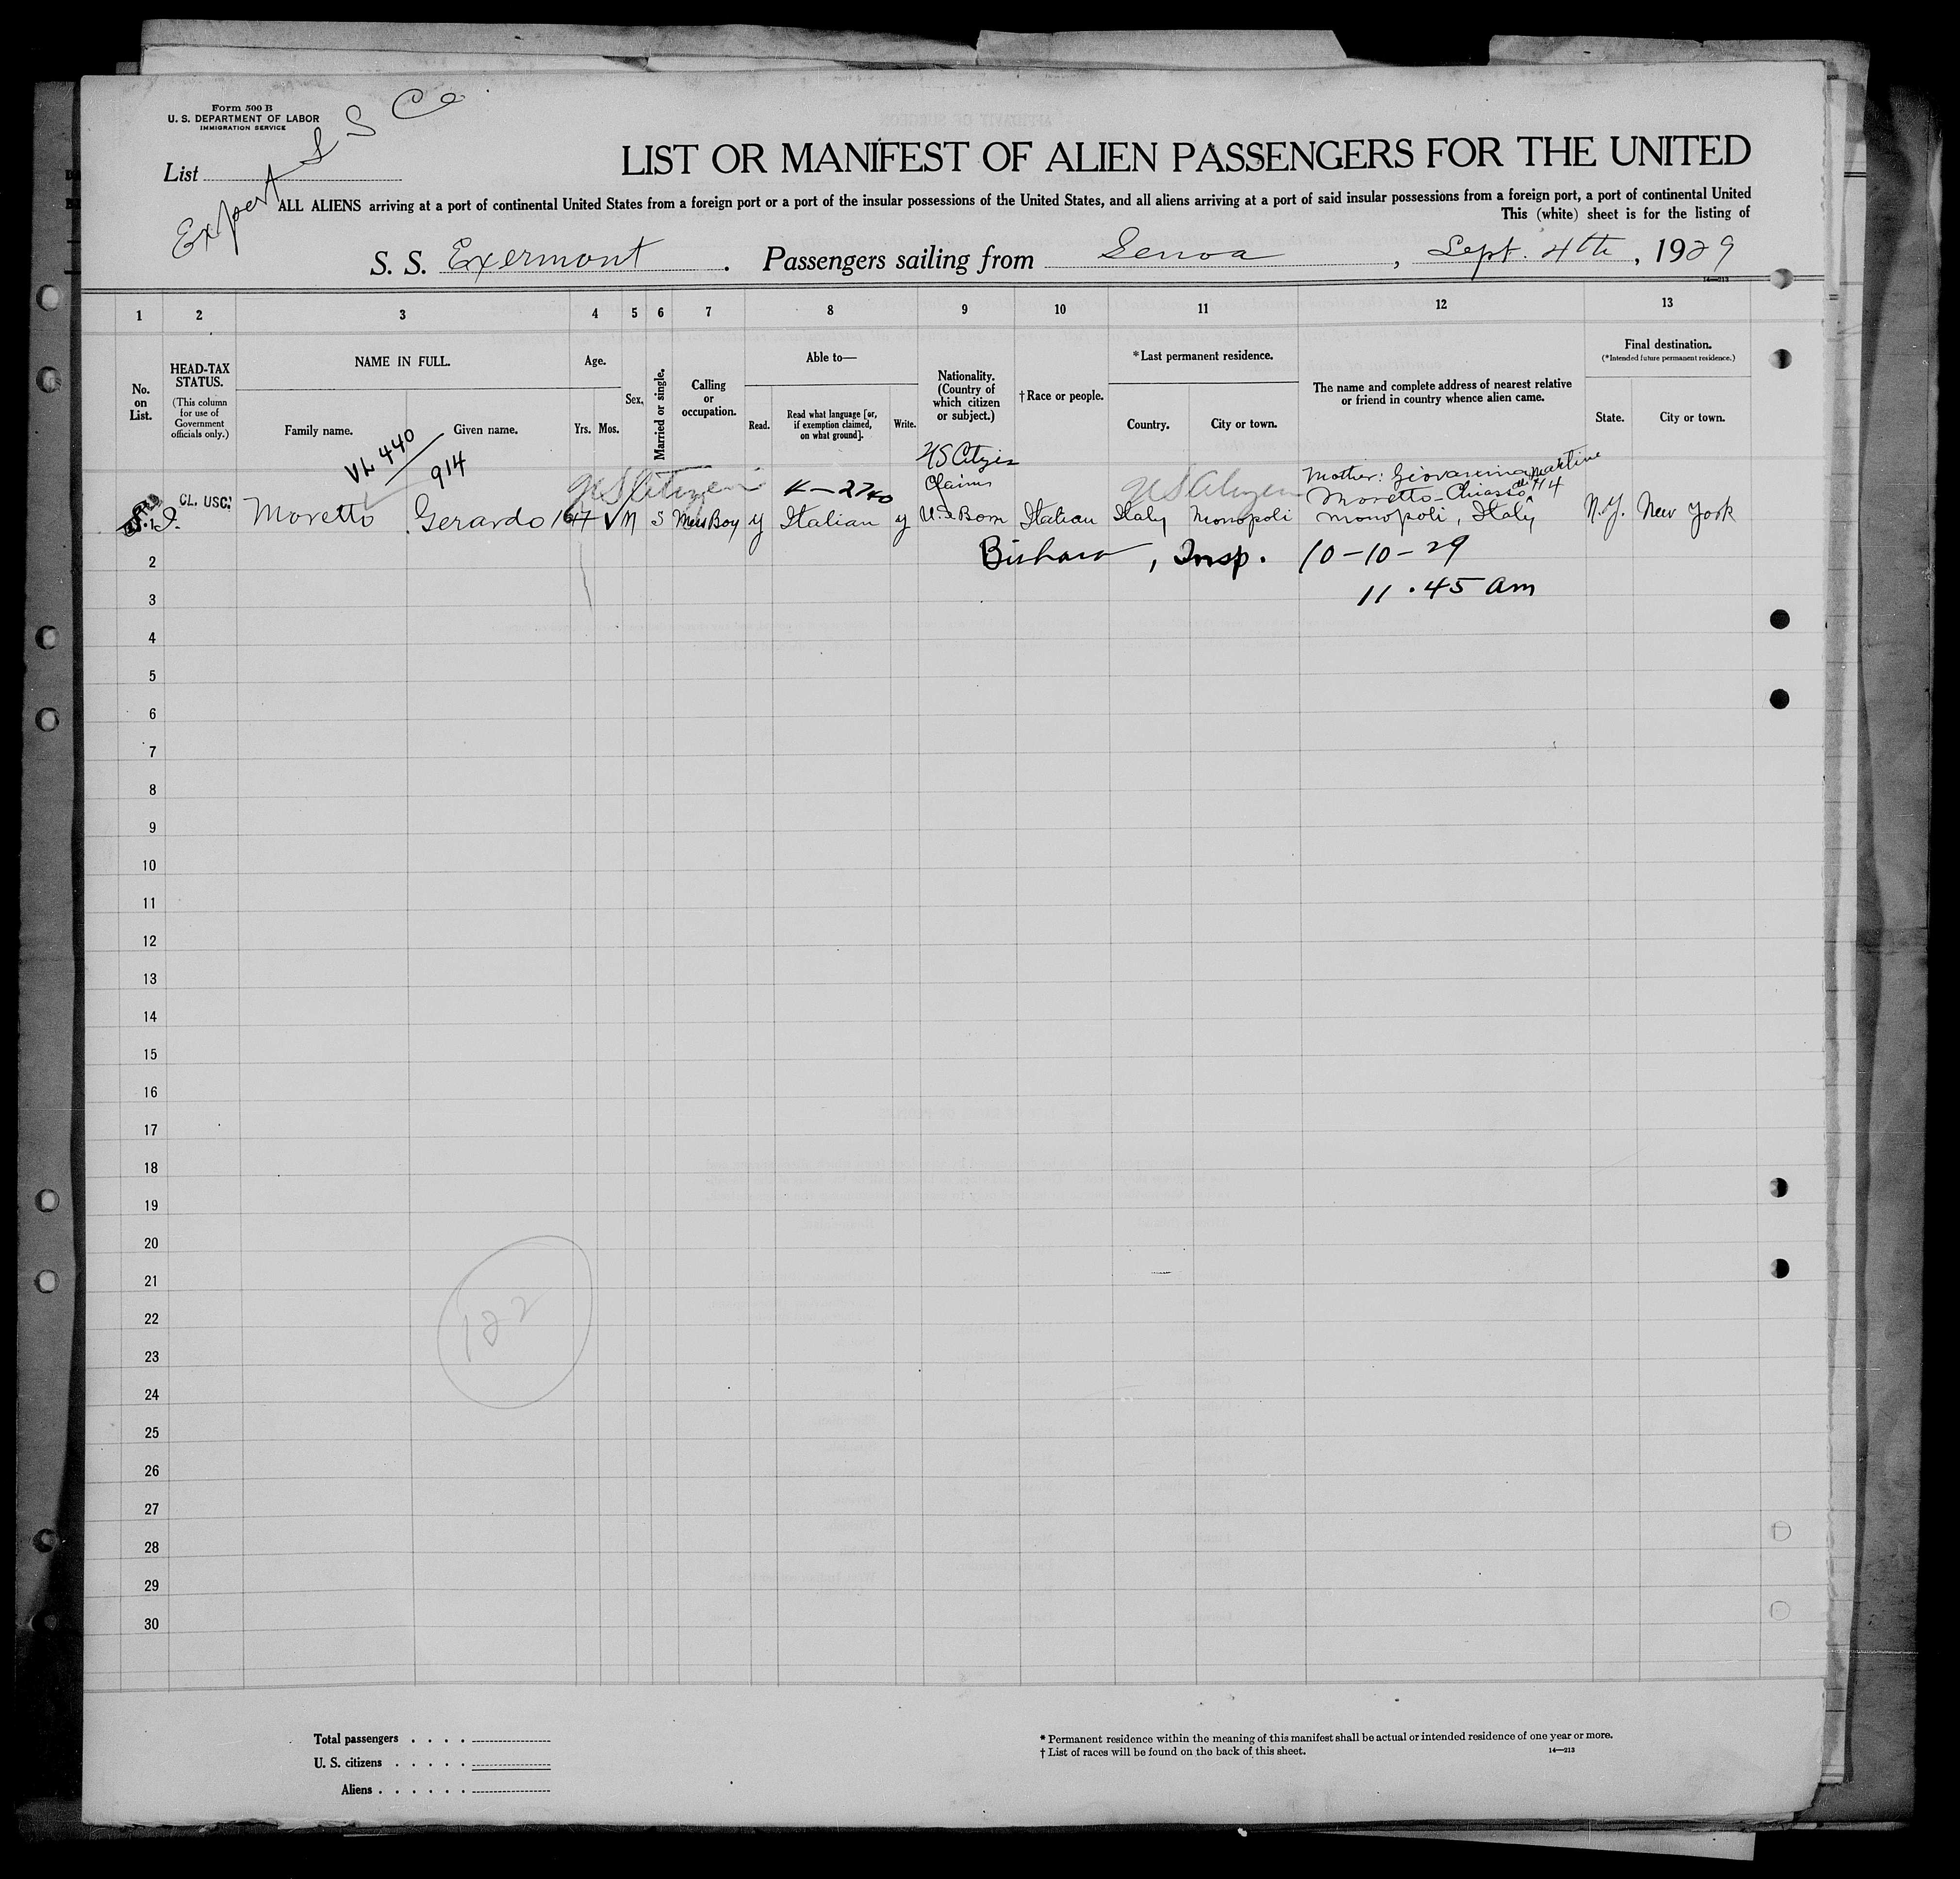 Form 500 B
U. S. DEPARTMENT OF LABOR
IMMIGRATION SERVICE
Export S S Co
List
LIST OR MANIFEST OF ALIEN PASSENGERS FOR THE UNITED
ALL ALIENS arriving at a port of continental United States from a foreign port or a port of the insular possessions of the United States, and all aliens arriving at a port of said insular possessions from a foreign port, a port of continental United
This (white) sheet is for the listing of
S. S. Exermont . Passengers sailing from Genoa , Sept. 4th , 1929
14—213
1 2 3 4 5 6 7 8 9 10 11 12 13
No. on List.
HEAD-TAX STATUS.
(This column for use of Government officials only.)
NAME IN FULL.
Family name. Given name.
Age.
Yrs. Mos.
Sex.
Married or single.
Calling or occupation.
Able to—
Read. Read what language [or, if exemption claimed, on what ground]. Write.
Nationality. (Country of which citizen or subject.)
†Race or people.
*Last permanent residence.
Country. City or town.
The name and complete address of nearest relative or friend in country whence alien came.
Final destination.
(*Intended future permanent residence.)
State. City or town.
VL 440
914
US Citizen
K-2740
US Citizen
Claims
US Citizen
Mother: Giovannina
Moretto-Chiasso 114
S.I. CL. USC. Moretto Gerardo 17 M S Mess Boy y Italian y U.S. Born Italian Italy Monopoli Monopoli, Italy N.Y. New York
2 Insp. 10-10-29
3 11.45 am
4
5
6
7
8
9
10
11
12
13
14
15
16
17
18
19
20
21
22
23
24
25
26
27
28
29
30
122
Total passengers . . . .
U. S. citizens . . . . .
Aliens . . . . . .
* Permanent residence within the meaning of this manifest shall be actual or intended residence of one year or more.
† List of races will be found on the back of this sheet. 14—213